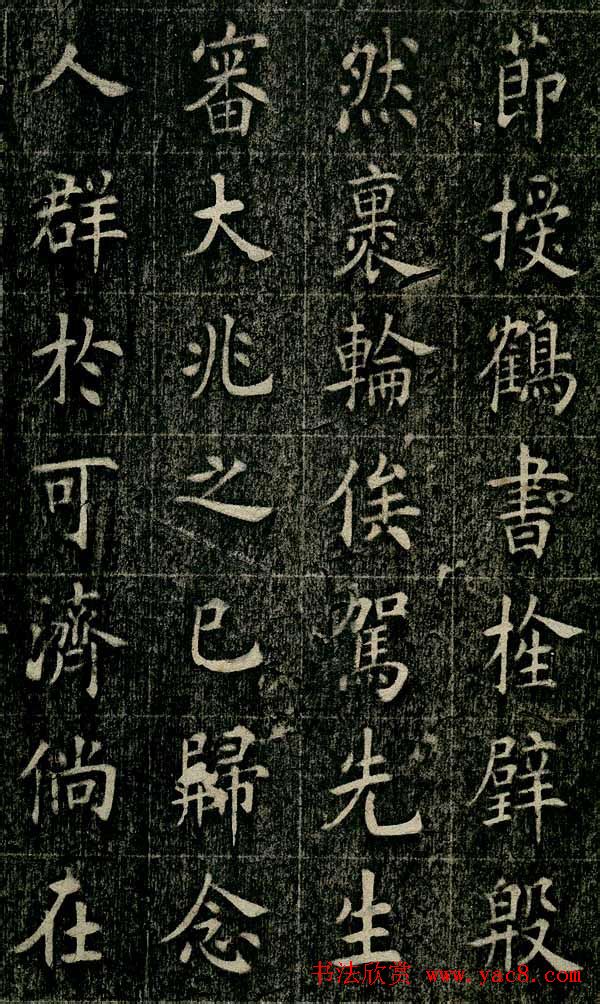 莭授鶴書栓璧殷
然裹輪俟駕先生
審大兆之已歸念
人群於可濟倘在
书法欣赏 www.yac8.com